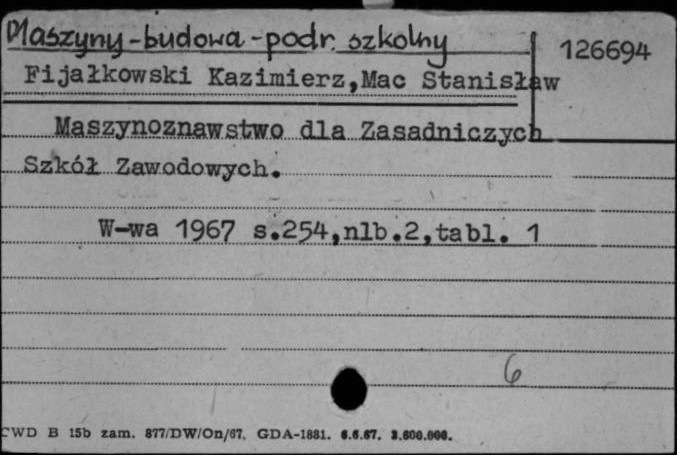 Maszyny-budowa-podr. szkolny
126694
Fijałkowski Kazimierz,Mac Stanisław
Maszynoznawstwo dla Zasadniczych
Szkół Zawodowych.
W-wa 1967 s.254,nlb.2,tabl. 1
6
CWD B 15b zam. 877/DW/On/67. GDA-1881. 6.6.67. 3.600.000.